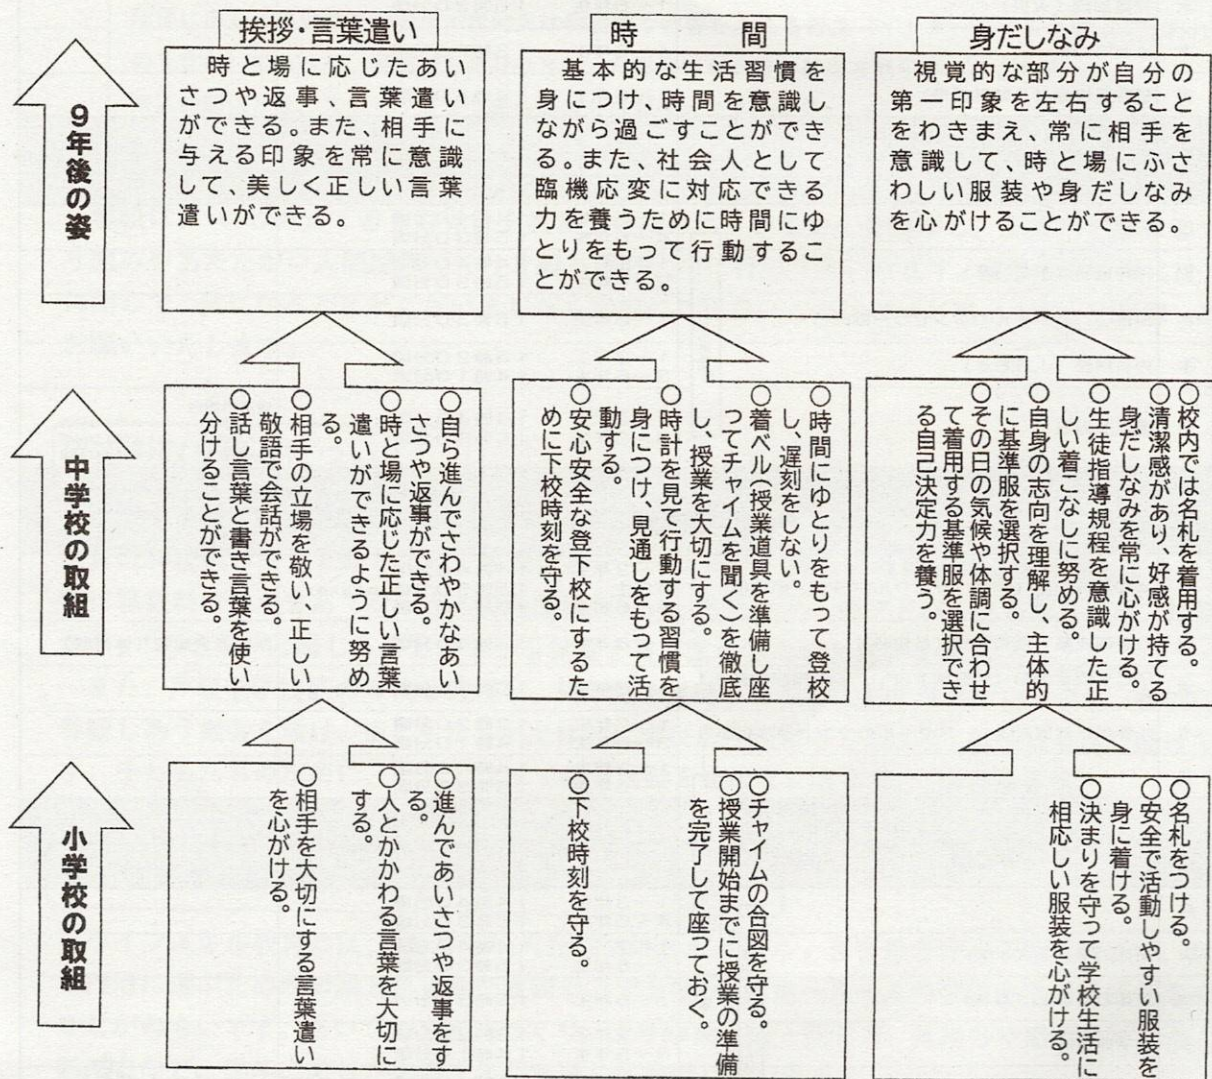 挨拶・言葉遣い
時と場に応じたあい
さつや返事、言葉遣い
ができる。また、相手に
与える印象を常に意識
して、美しく正しい言葉
遣いができる。
時間
基本的な生活習慣を
身につけ、時間を意識し
ながら過ごすことができ
る。また、社会人として
臨機応変に対応できる
力を養うために時間にゆ
とりをもって行動するこ
とができる。
身だしなみ
視覚的な部分が自分の
第一印象を左右すること
をわきまえ、常に相手を
意識して、時と場にふさ
わしい服装や身だしなみ
を心がけることができる。
9年後の姿
中学校の取組
○自ら進んでさわやかなあい
さつや返事ができる。
○時と場に応じた正しい言葉
遣いができるように努め
る。
○相手の立場を敬い、正しい
敬語で会話ができる。
○話し言葉と書き言葉を使い
分けることができる。
○時間にゆとりをもって登校
し、遅刻をしない。
○着ベル(授業道具を準備し座
ってチャイムを聞く)を徹底
し、授業を大切にする。
○時計を見て行動する習慣を
身につけ、見通しをもって活
動する。
○安心安全な登下校にするた
めに下校時刻を守る。
○校内では名札を着用する。
○清潔感があり、好感が持てる
身だしなみを常に心がける。
○生徒指導規程を意識した正
しい着こなしに努める。
○自身の志向を理解し、主体的
に基準服を選択する。
○その日の気候や体調に合わせ
て着用する基準服を選択でき
る自己決定力を養う。
小学校の取組
○進んであいさつや返事をす
る。
○人とかかわる言葉を大切に
する。
○相手を大切にする言葉遣い
を心がける。
○チャイムの合図を守る。
○授業開始までに授業の準備
を完了して座っておく。
○下校時刻を守る。
○名札をつける。
○安全で活動しやすい服装を
身に着ける。
○決まりを守って学校生活に
相応しい服装を心がける。